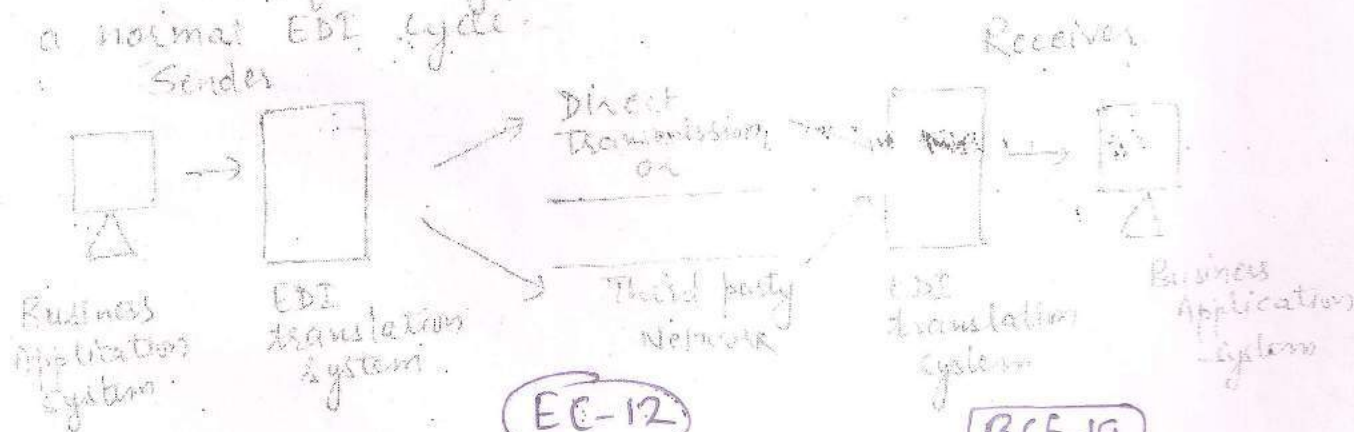 a normal EDI cycle
Sender
Receiver
Direct
Transmission
or
Third party
Network
Business
Application
system.
EDI
translation
system.
EDI
translation
system
Business
Application
system
EC-12